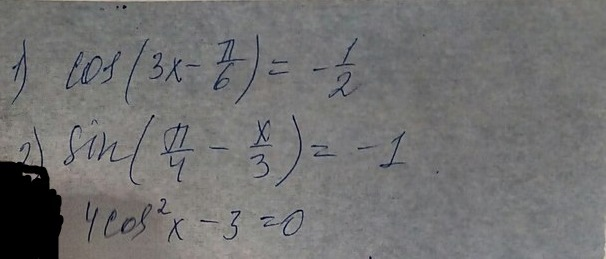 1) cos(3x - π/6) = -1/2
2) sin(π/4 - x/3) = -1
4cos²x - 3 = 0